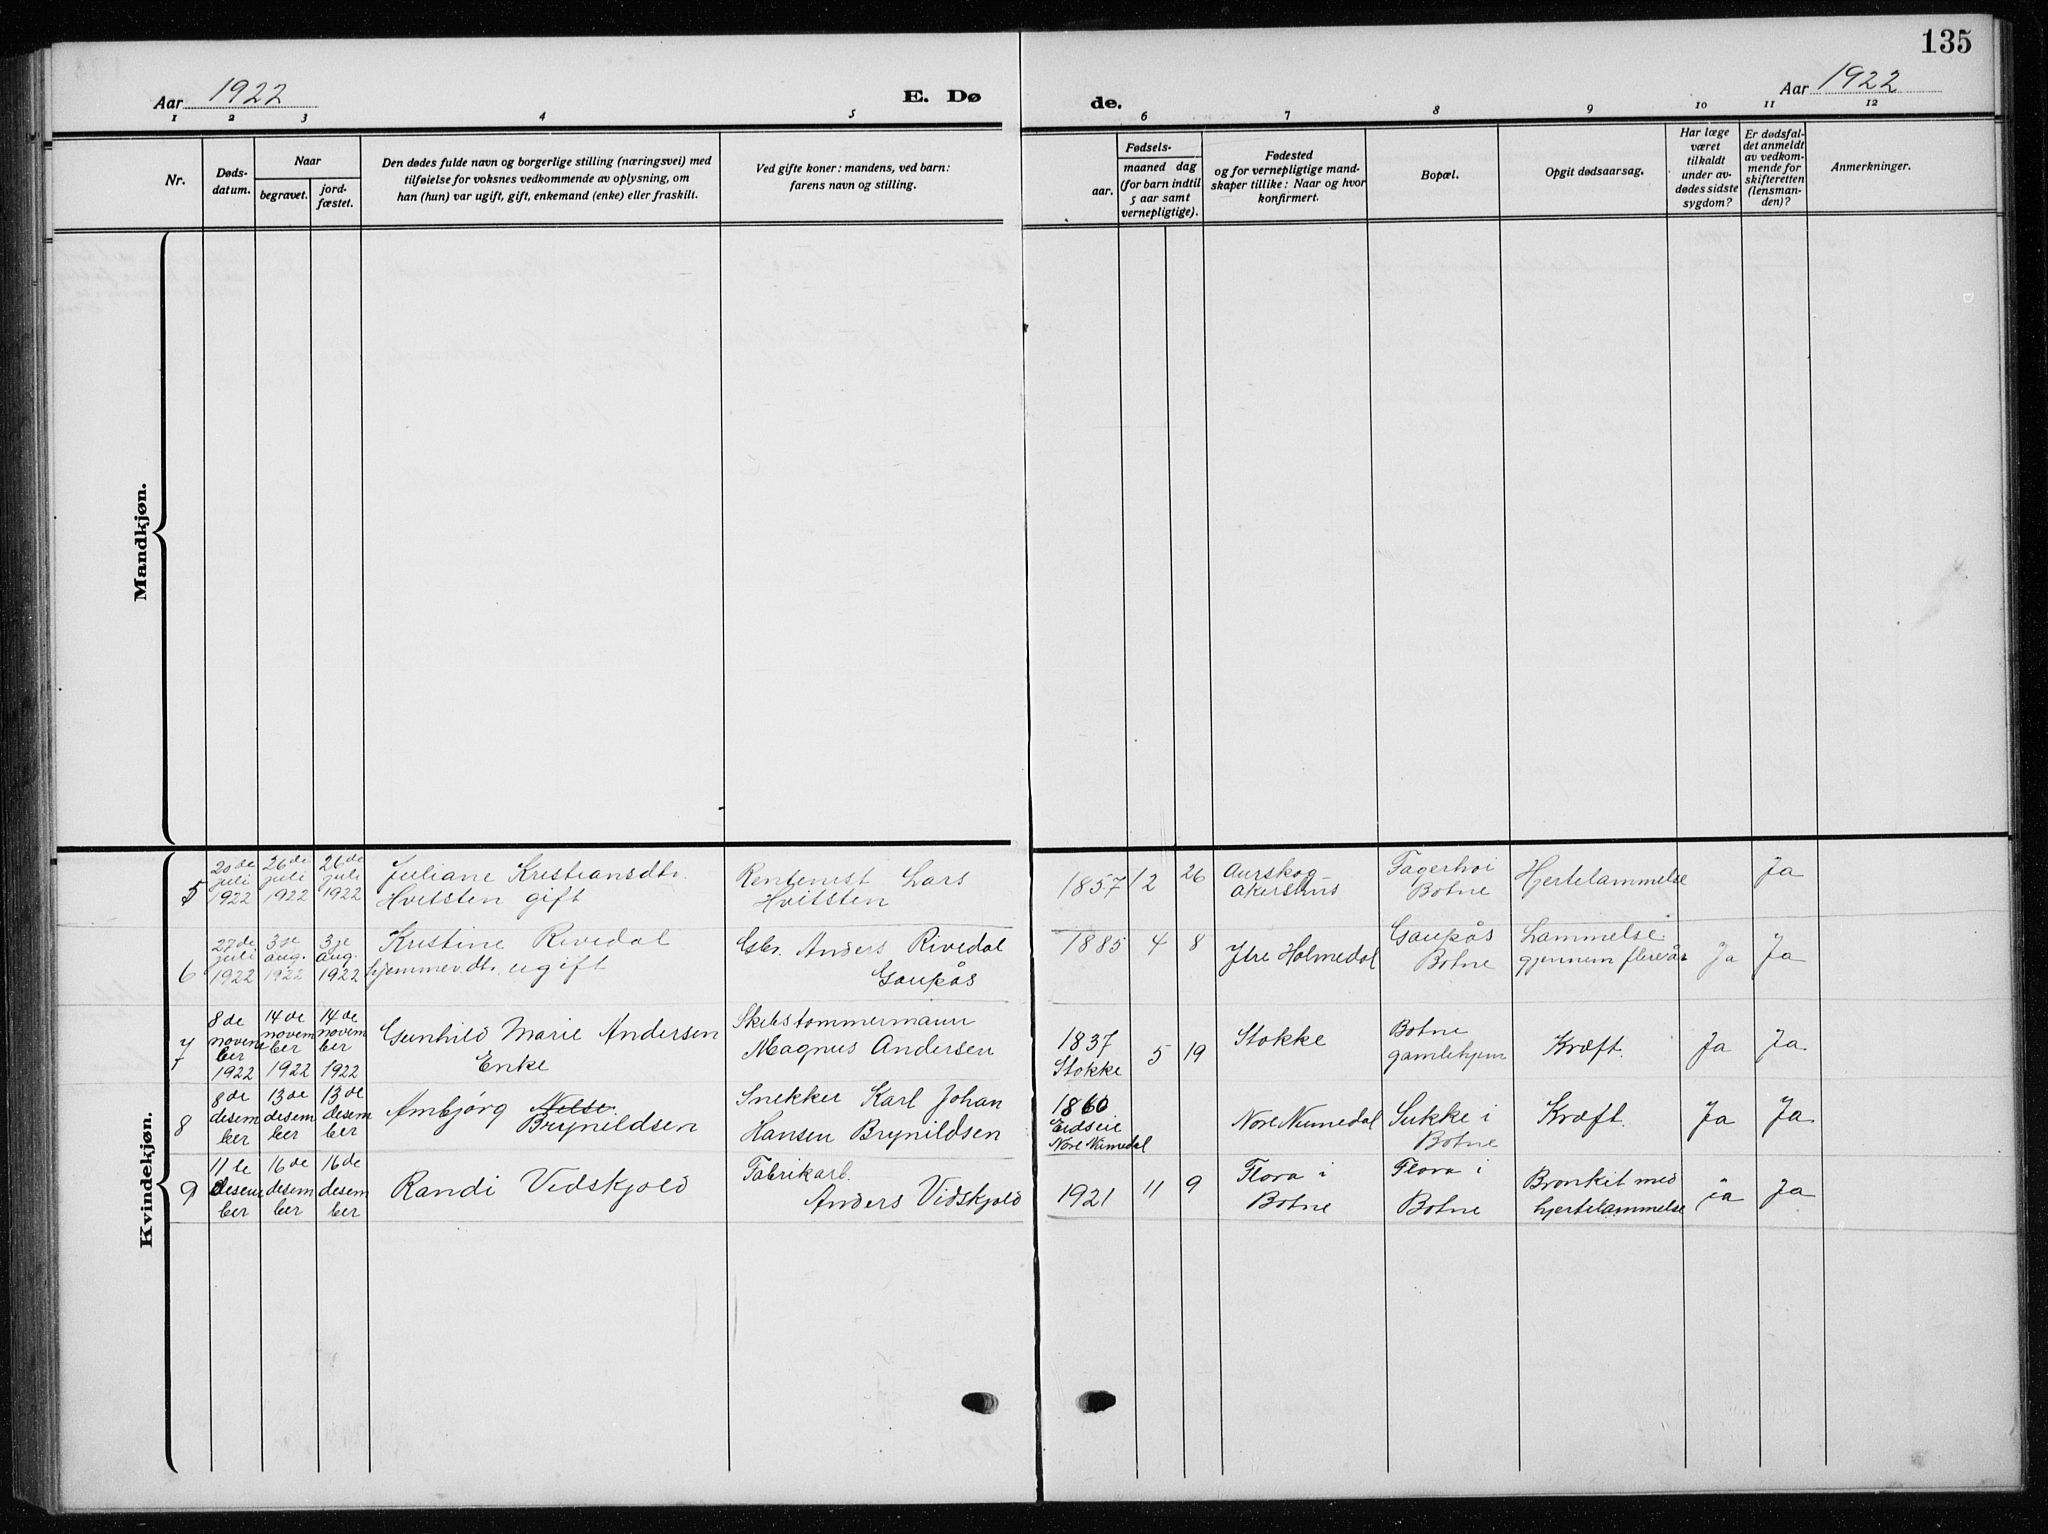 135
Aar 1922
E. Dø
de.
Aar 1922
1 2 3 4 5 6 7 8 9 10 11 12
Nr.
Døds-
datum.
Naar
begravet.
jord-
fæstet.
Den dødes fulde navn og borgerlige stilling (næringsvei) med
tilføielse for voksnes vedkommende av oplysning, om
han (hun) var ugift, gift, enkemand (enke) eller fraskilt.
Ved gifte koner: mandens, ved barn:
farens navn og stilling.
Fødsels-
aar.
maaned dag
(for barn indtil
5 aar samt
vernepligtige).
Fødested
og for vernepligtige mand-
skaper tillike: Naar og hvor
konfirmert.
Bopæl.
Opgit dødsaarsag.
Har læge
været
tilkaldt
under av-
dødes sidste
sygdom?
Er dødsfal-
det anmeldt
av vedkom-
mende for
skifteretten
(lensman-
den)?
Anmerkninger.
Mandkjøn.
Kvindekjøn.
5
20de
juli
1922
26de
juli
1922
26de
juli
1922
Juliane Kristiansdtr.
Hvitsten gift
Rentenist Lars
Hvitsten
1857 12 26
Aurskog
Akershus
Fagerhøi
Botne
Hjertelammelse
Ja
6
27de
juli
1922
3je
aug.
1922
3je
aug.
1922
Kristine Rivedal
hjemmev.dtr. ugift
Gbr. Anders Rivedal
Gaupås
1885 4 8
Ytre Holmedal
Gaupås
Botne
Lammelse
gjennem flere år
Ja
Ja
7
8de
novem
ber
1922
14de
novem
ber
1922
14de
novem
ber
1922
Gunhild Marie Andersen
Enke
Skibstømmermann
Magnus Andersen
1837
Stokke
5 19
Stokke
Botne
gamlehjem
Kræft.
Ja
Ja.
8
8de
desem
ber
13de
desem
ber
13de
desem
ber
Ambjørg Nilse.
Brynildsen
Snekker Karl Johan
Hansen Brynildsen
1860
Eidseie
Nore Numedal
Nore Numedal
Sukke i
Botne
Kræft.
Ja
Ja
9
11te
desem
ber
16de
desem
ber
16de
desem
ber
Randi Vidskjold
Fabrikarb.
Anders Vidskjold
1921 11 9
Flora i
Botne
Flora i
Botne
Bronkit med
hjertelammelse
ja
Ja